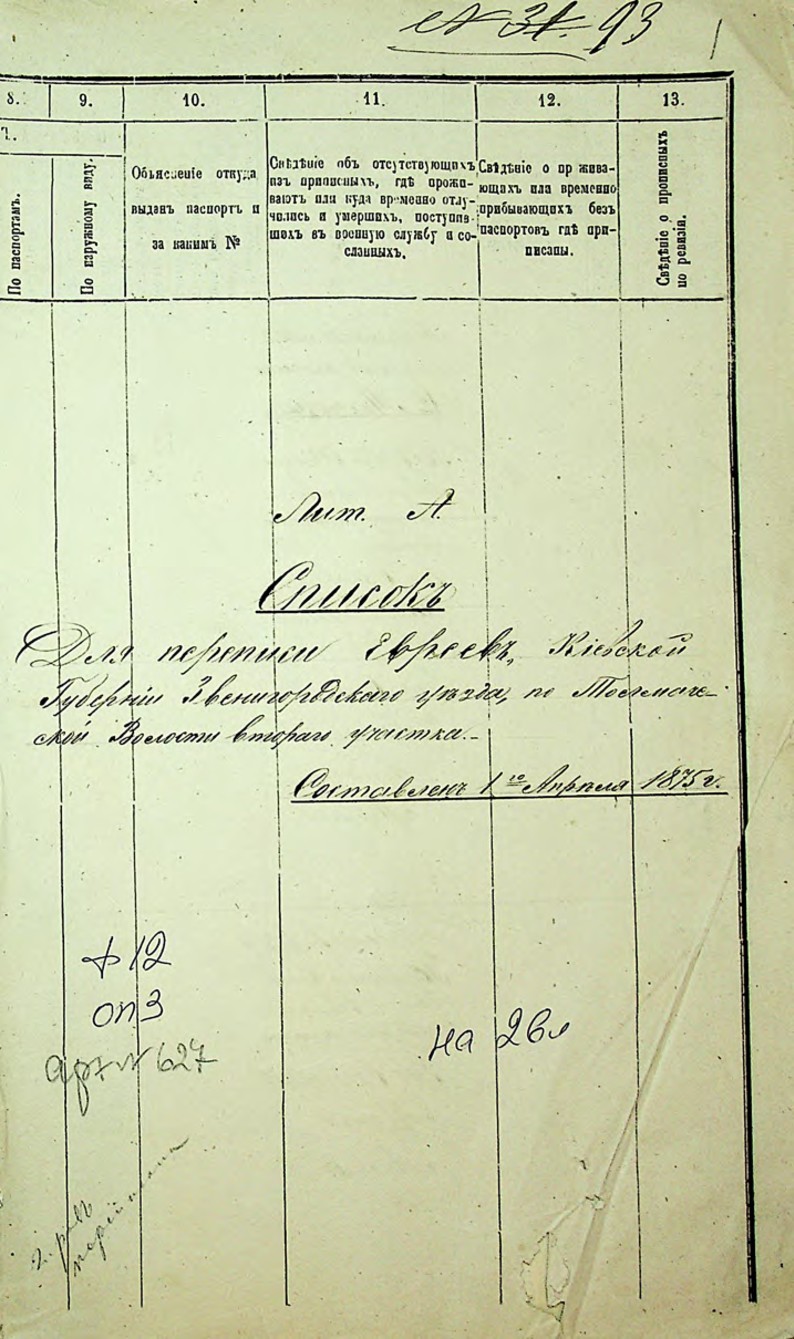 № 31. 93
1
8.
9.
10.
11.
12.
13.
По паспортамъ.
По наружному виду.
Объясненіе откуда
выданъ паспортъ и
за какимъ №
Свѣдѣніе объ отсутствующихъ
изъ приписныхъ, гдѣ прожи-
ваютъ или куда временно отлу-
чились и умершихъ, поступив-
шихъ въ военную службу и со-
сланныхъ.
Свѣдѣніе о пр жива-
ющихъ или временно
прибывающихъ безъ
паспортовъ гдѣ при-
писаны.
Свѣдѣніе о прописныхъ
по ревизіи.
Лит. А.
Списокъ
Для переписи Евреевъ, Кіевской
Губерніи Звенигородскаго уѣзда, по
ской Волости втораго участка.-
Составленъ 1го Апрѣля 1875 г.
ф 12
оп 3
арх № 627
на 26 л